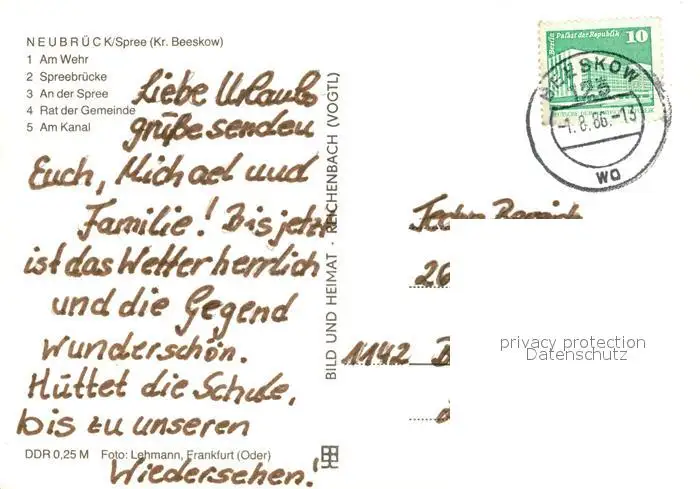 NEUBRÜCK/Spree (Kr. Beeskow)
1 Am Wehr
2 Spreebrücke
3 An der Spree
4 Rat der Gemeinde
5 Am Kanal
Liebe Urlaubs
grüße senden
Euch, Michael und
Familie! Bis jetzt
ist das Wetter herrlich
und die Gegend
wunderschön.
Hüttet die Schule,
bis zu unseren
Wiedersehen!
DDR 0,25 M Foto: Lehmann, Frankfurt (Oder)
BILD UND HEIMAT · REICHENBACH (VOGTL)
Berlin Palast der Republik 10
BEESKOW
125
-1.8.86.-13
wo
26
1142 B
privacy protection
Datenschutz